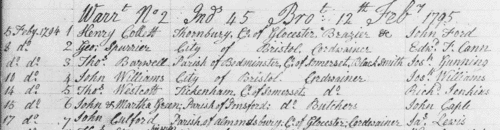 Warrt. No. 2 Ind 45 Brot. 12th Feby. 1795
5 Feby. 1794 1 Henry Collett Thornbury, C. of Glocester Brazier & John Ford
8 do. 2 Geo. Spurrier City of Bristol. Cordwainer Edwd. T. Cann
do. do. 3 Thos. Barwell Parish of Bedminster, C. of Somerset, Black Smith Jos. Gunning
10 do. 4 John Williams City of Bristol. Cordwainer Jos. Williams
14 do. 5 Thos. Westcott Tickenham, C. of Somerset, do. Richd. Jenkins
16 do. 6 John & Martha Green; Parish of Pensford; do. Butchers John Caple
17 do. 7 John Culford Parish of Almondsbury, C. of Glocester; Cordwainer Jas. Lewis